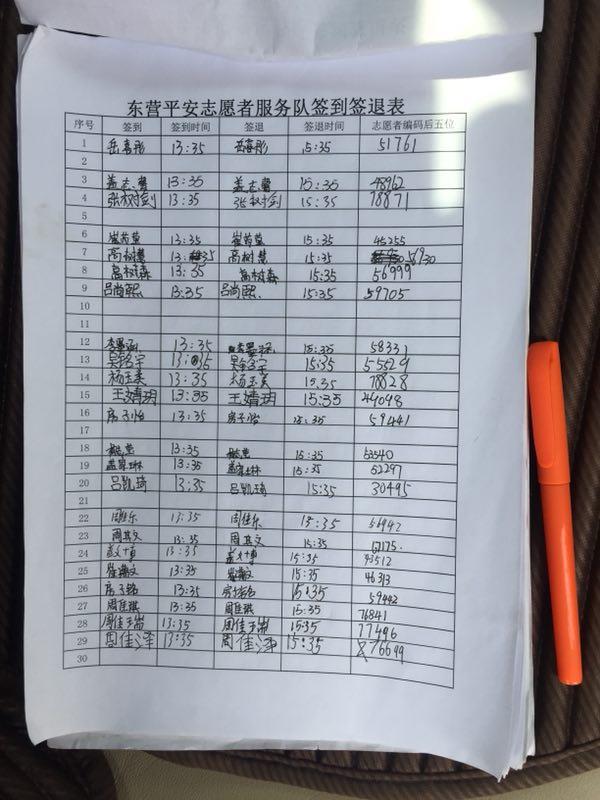 东营平安志愿者服务队签到签退表
序号 签到 签到时间 签退 签退时间 志愿者编码后五位
1 岳喜彤 13:35 岳喜彤 15:35 51761
2
3 盖志馨 13:35 盖志馨 15:35 48962
4 张树剑 13:35 张树剑 15:35 78871
5
6 崔茵萱 13:35 崔茵萱 15:35 45255
7 高树慧 13:35 高树慧 15:35 56930
8 高树森 13:35 高树森 15:35 56999
9 吕尚熙 13:35 吕尚熙 15:35 59705
10
11
12 李墨涵 13:35 李墨涵 15:35 58331
13 吴铭宇 13:35 15:35 55529
14 杨玉美 13:35 杨玉美 15:35 78828
15 王婧玥 13:35 王婧玥 15:35 49098
16 房子怡 13:35 房子怡 15:35 59441
17
18 13:35 15:35 53540
19 13:35 15:35 52297
20 吕凯琦 13:35 吕凯琦 15:35 30495
21
22 周佳乐 13:35 周佳乐 15:35 54942
23 周其文 13:35 周其文 15:35 17175
24 13:35 15:35 43512
25 13:35 15:35 46313
26 房子铭 13:35 15:35 59442
27 周佳琪 13:35 周佳琪 15:35 76841
28 周佳子涵 13:35 周佳子涵 15:35 77496
29 周佳泽 13:35 周佳泽 15:35 76699
30